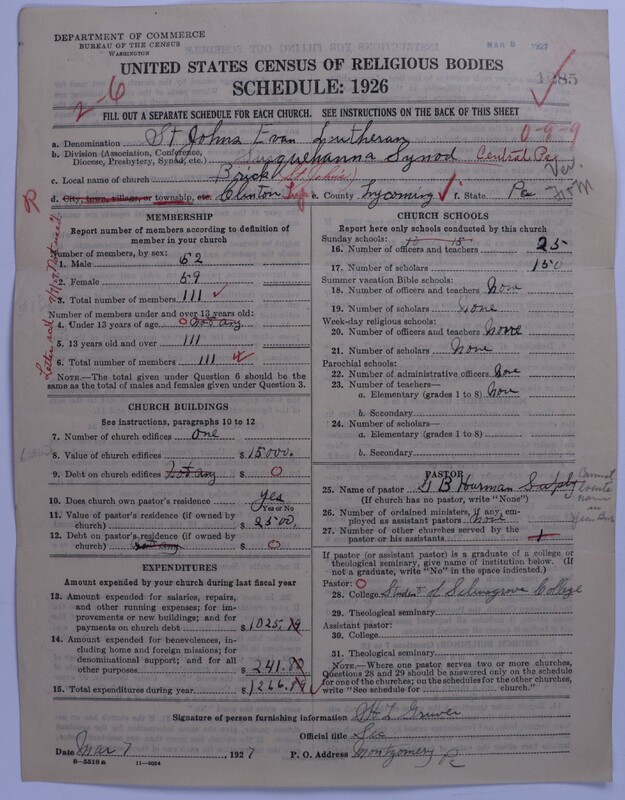 DEPARTMENT OF COMMERCE
BUREAU OF THE CENSUS
WASHINGTON
MAR 8 1927
UNITED STATES CENSUS OF RELIGIOUS BODIES
SCHEDULE: 1926
1285
2-6
FILL OUT A SEPARATE SCHEDULE FOR EACH CHURCH. SEE INSTRUCTIONS ON THE BACK OF THIS SHEET
a. Denomination St Johns Evan Lutheran 0-9-9
b. Division (Association, Conference, Diocese, Presbytery, Synod, etc.) Susquehanna Synod Central Pa
c. Local name of church Brick (St Johns)
d. City, town, village, or township, etc. Clinton Twp e. County Lycoming f. State Pa
MEMBERSHIP
Report number of members according to definition of member in your church
Number of members, by sex:
1. Male 52
2. Female 59
3. Total number of members 111
Number of members under and over 13 years old:
4. Under 13 years of age 0 not any
5. 13 years old and over 111
6. Total number of members 111
NOTE.—The total given under Question 6 should be the same as the total of males and females given under Question 3.
CHURCH BUILDINGS
See instructions, paragraphs 10 to 12
7. Number of church edifices one
8. Value of church edifices $ 15000.
9. Debt on church edifices not any $ 0
10. Does church own pastor's residence? yes
Yes or No
11. Value of pastor's residence (if owned by church) $ 2500.
12. Debt on pastor's residence (if owned by church) not any $ 0
EXPENDITURES
Amount expended by your church during last fiscal year
13. Amount expended for salaries, repairs, and other running expenses; for improvements or new buildings; and for payments on church debt $ 1025.19
14. Amount expended for benevolences, including home and foreign missions; for denominational support; and for all other purposes $ 241.
15. Total expenditures during year $ 1266.
CHURCH SCHOOLS
Report here only schools conducted by this church
Sunday schools: 10 15
16. Number of officers and teachers 25
17. Number of scholars 150
Summer vacation Bible schools:
18. Number of officers and teachers None
19. Number of scholars None
Week-day religious schools:
20. Number of officers and teachers None
21. Number of scholars None
Parochial schools:
22. Number of administrative officers None
23. Number of teachers—
a. Elementary (grades 1 to 8) None
b. Secondary
24. Number of scholars—
a. Elementary (grades 1 to 8)
b. Secondary
PASTOR
25. Name of pastor G B Harman Supply
(If church has no pastor, write "None")
26. Number of ordained ministers, if any, employed as assistant pastors None
27. Number of other churches served by the pastor or his assistants 1
If pastor (or assistant pastor) is a graduate of a college or theological seminary, give name of institution below. (If not a graduate, write "No" in the space indicated.)
Pastor: 0
28. College Student of Selinsgrove College
29. Theological seminary
Assistant pastor:
30. College
31. Theological seminary
NOTE.—Where one pastor serves two or more churches, Questions 28 and 29 should be answered only on the schedule for one of the churches; on the schedules for the other churches, write "See schedule for church."
Signature of person furnishing information H L Gruver
Official title Sec
Date Mar 7 1927 P. O. Address Montgomery Pa
8-5518a 11-9054